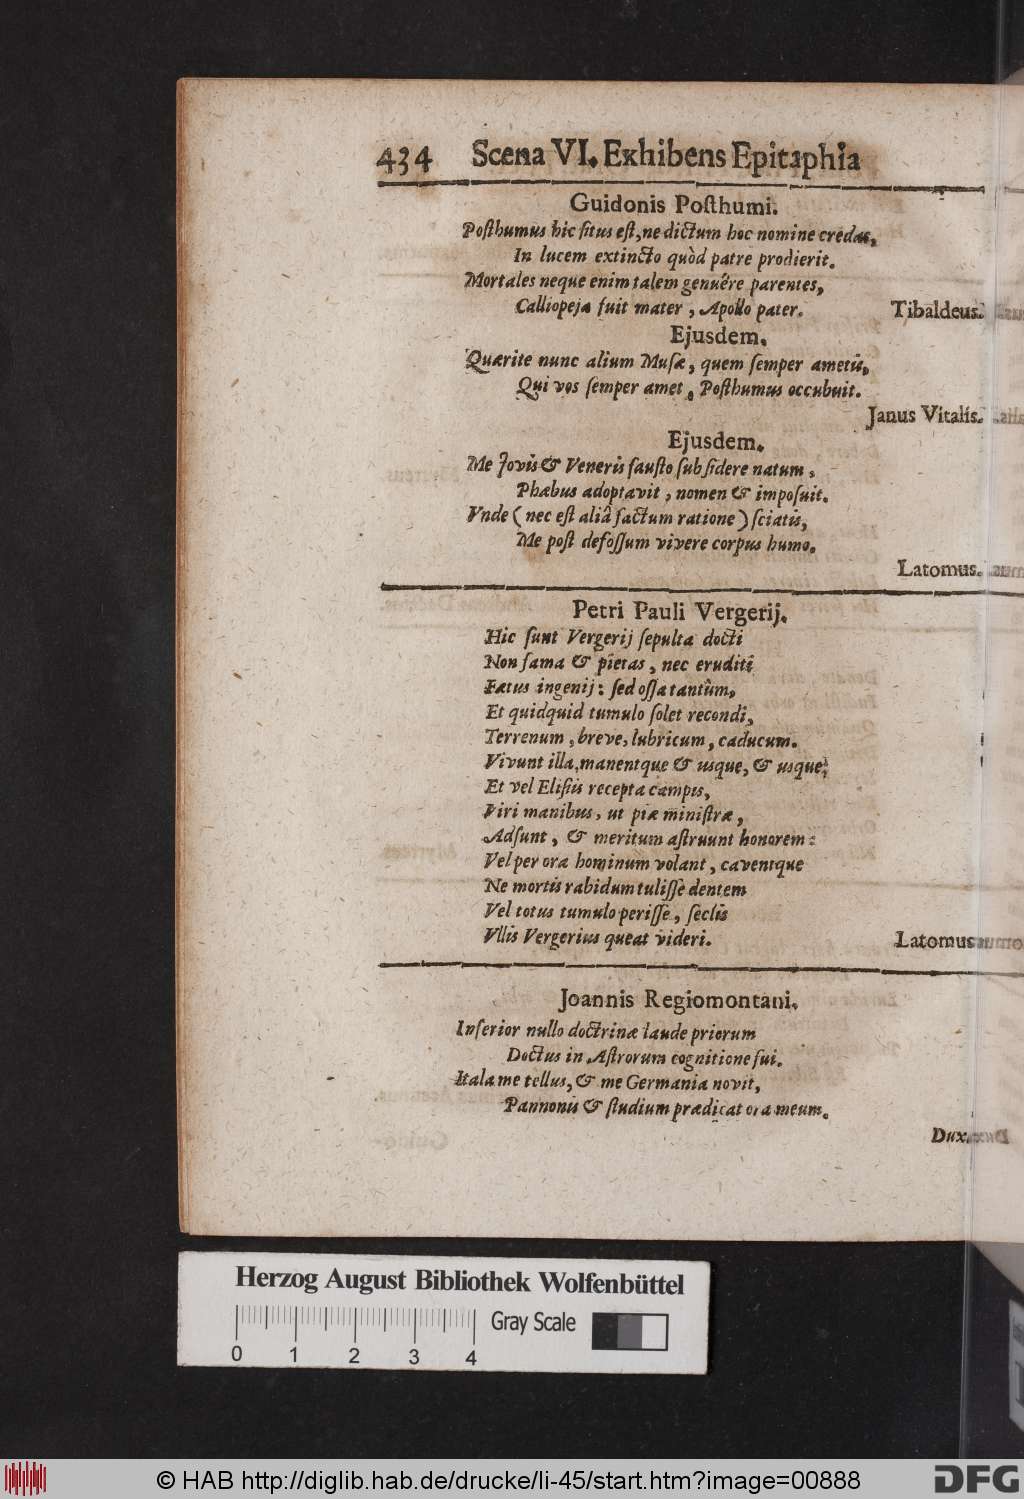 434 Scena VI. Exhibens Epitaphia
Guidonis Posthumi.
Posthumus hic situs est, ne dictum hoc nomine credas,
In lucem extincto quòd patre prodierit.
Mortales neque enim talem genuêre parentes,
Calliopeja fuit mater, Apollo pater. Tibaldeus.
Ejusdem.
Quærite nunc alium Musæ, quem semper ametis,
Qui vos semper amet, Posthumus occubuit.
Janus Vitalis.
Ejusdem.
Me Jovis & Veneris fausto sub sidere natum,
Phæbus adoptavit, nomen & imposuit.
Vnde (nec est aliâ factum ratione) sciatis,
Me post defossum vivere corpus humo.
Latomus.
Petri Pauli Vergerij.
Hic sunt Vergerij sepulta docti
Non fama & pietas, nec eruditi
Fætus ingenij: sed ossa tantùm,
Et quidquid tumulo solet recondi,
Terrenum, breve, lubricum, caducum.
Vivunt illa, manentque & usque, & usque;
Et vel Elisiis recepta campis,
Viri manibus, ut piæ ministræ,
Adsunt, & meritum astruunt honorem:
Vel per ora hominum volant, caventque
Ne mortis rabidum tulisse dentem
Vel totus tumulo perisse, seclis
Vllis Vergerius queat videri. Latomus
Joannis Regiomontani.
Inferior nullo doctrinæ laude priorum
Doctus in Astrorum cognitione fui.
Itala me tellus, & me Germania novit,
Pannonis & studium prædicat ora meum.
Dux
Herzog August Bibliothek Wolfenbüttel
Gray Scale
0 1 2 3 4
© HAB http://diglib.hab.de/drucke/li-45/start.htm?image=00888
DFG